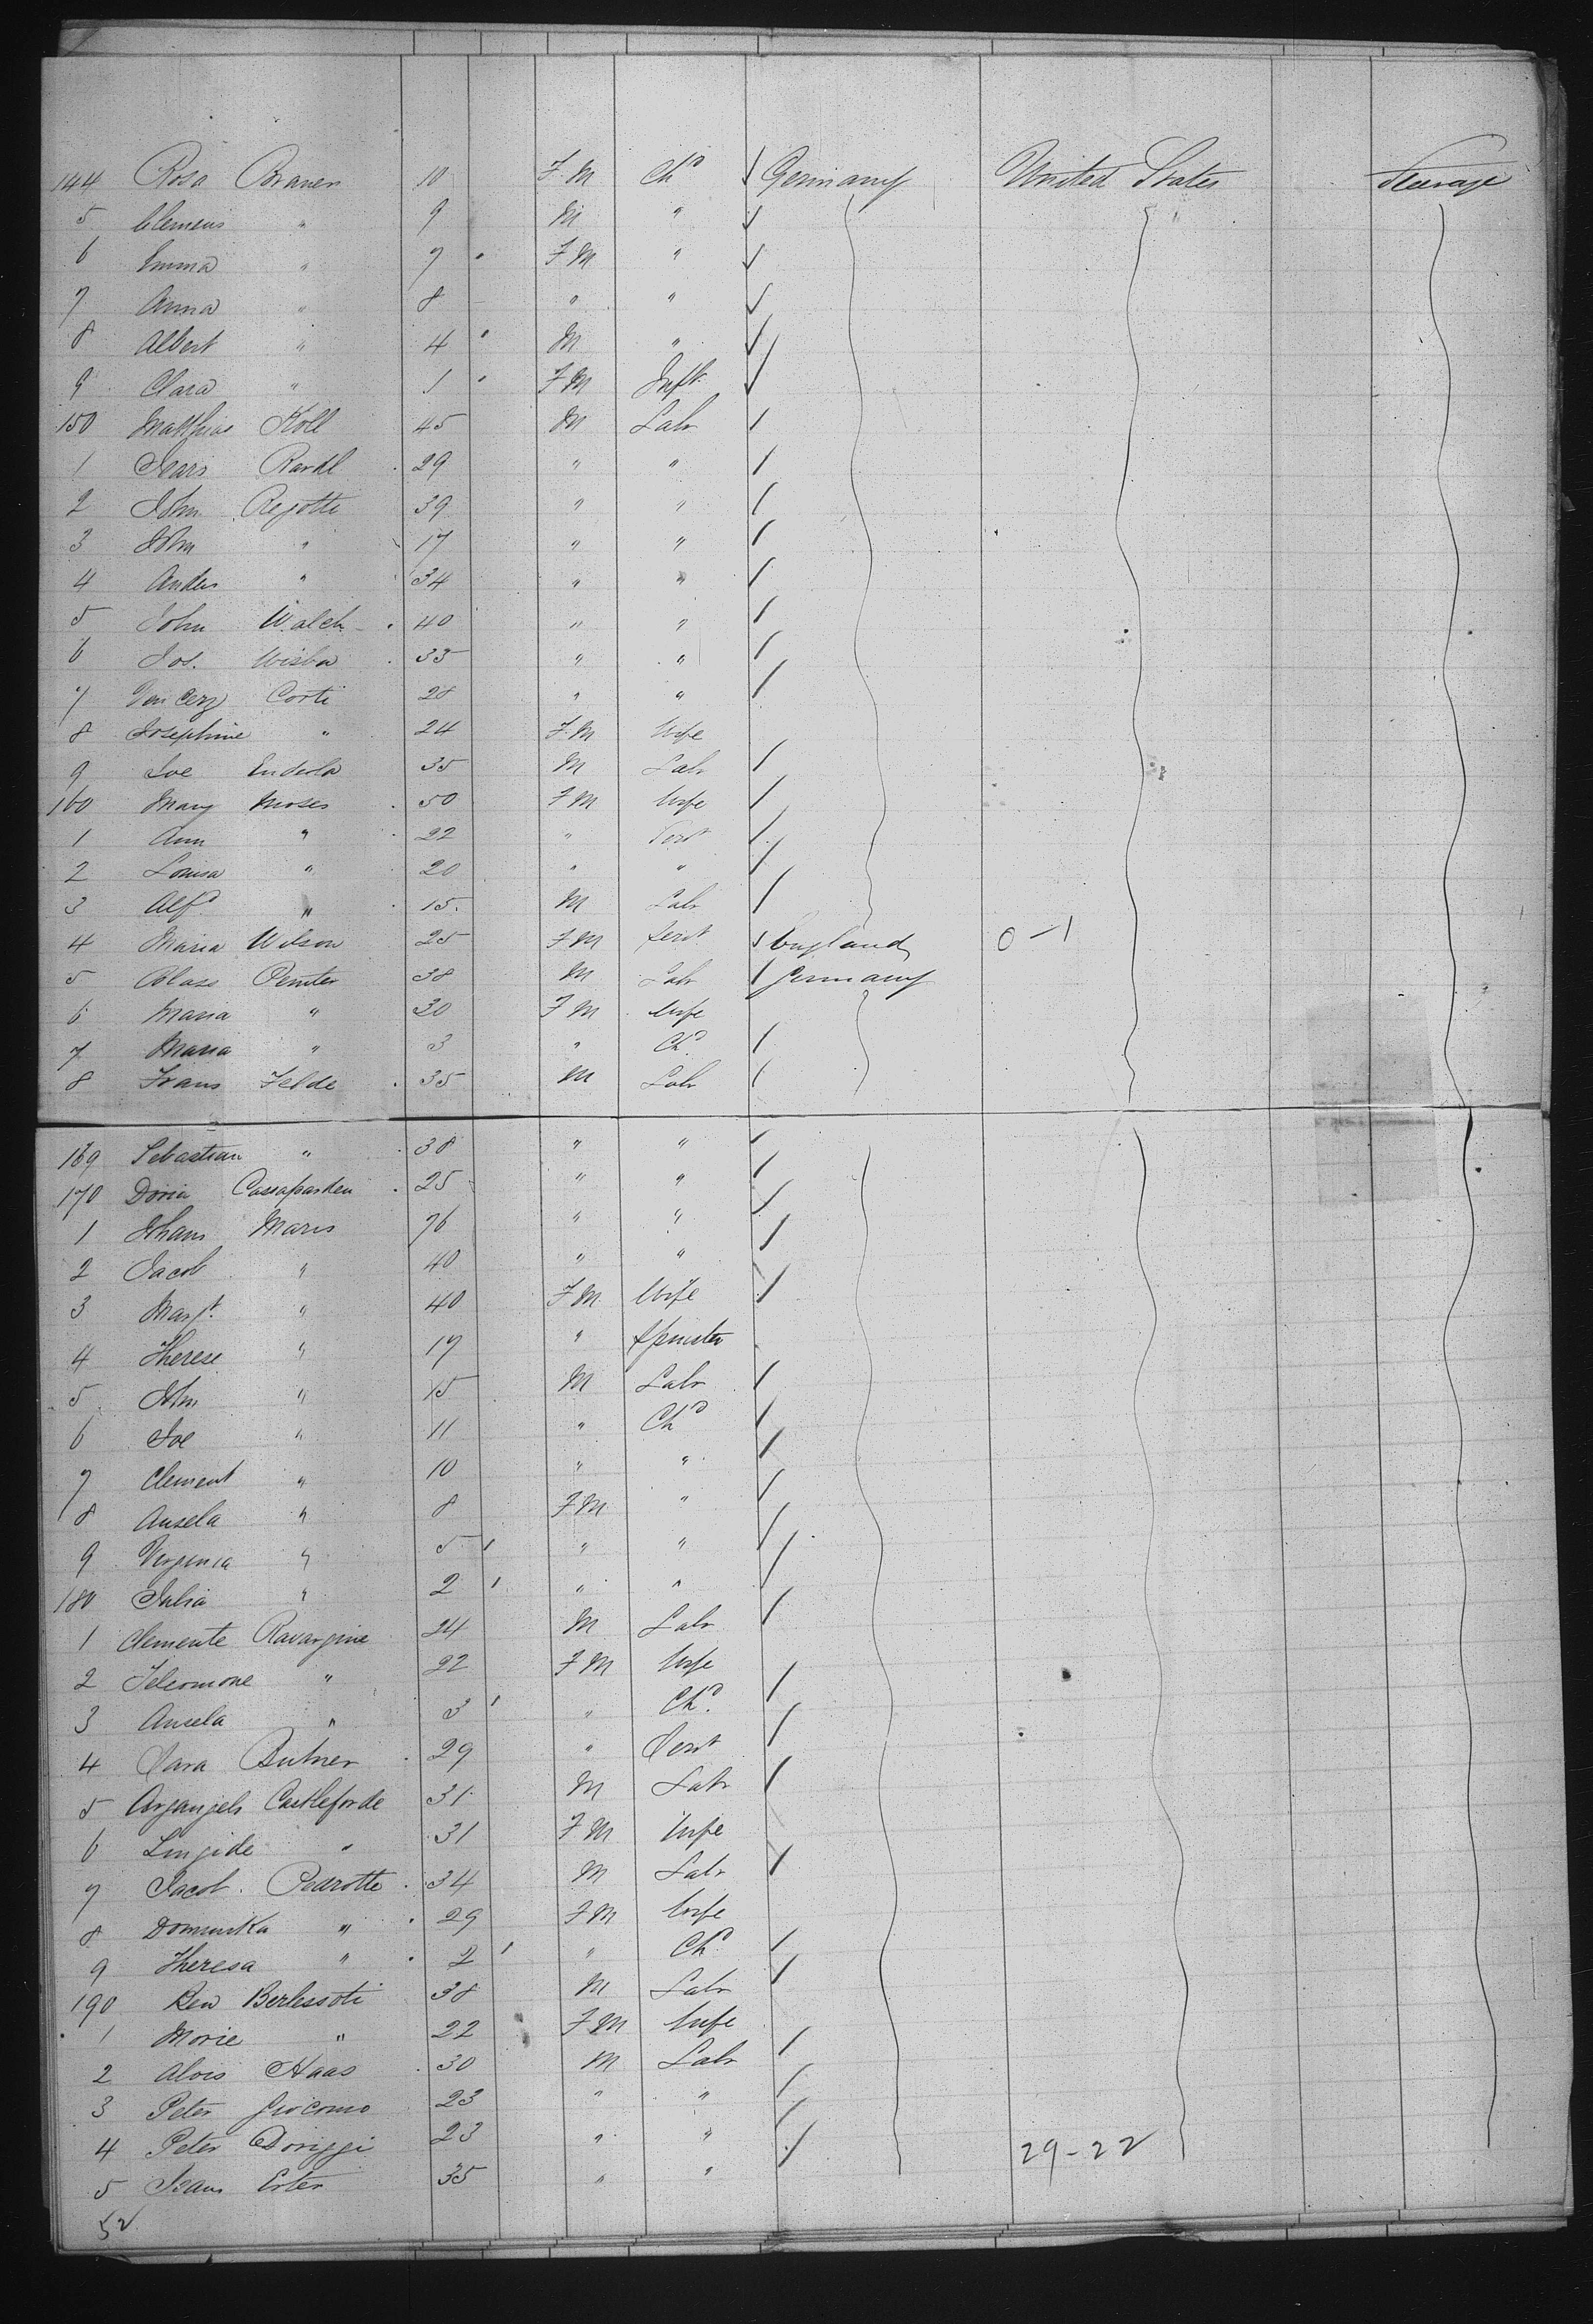 144 Rosa Braner 10 FM Chd Germany United States Steerage
5 Clemens " 9 M "
6 Emma " 7 FM "
7 Anna " 8 " "
8 Albert " 4 M "
9 Clara " 1 FM Inft
150 Matthias Koll 45 M Labr
1 29 " "
2 John Regotti 39 " "
3 John " 17 " "
4 Andes " 34 " "
5 John Walch 40 " "
6 Jos. 33 " "
7 Corti 28 " "
8 Josephine " 24 FM Wife
9 Joe Enderla 35 M Labr
160 Mary Moses 50 FM Wife
1 Ann " 22 " Servt
2 Louisa " 20 " "
3 Alfd " 15 M Labr
4 Maria Wilson 25 FM Servt England 0-1
5 Penter 38 M Labr Germany
6 Maria " 30 FM Wife
7 Maria " 3 " Chd
8 Frans Felde 35 M Labr
169 Sebastian " 38 " "
170 Doria 25 " "
1 Johans Maris 76 " "
2 Jacob " 40 " "
3 Margt " 40 FM Wife
4 Therese " 17 " Spinster
5 John " 15 M Labr
6 Joe " 11 " Chd
7 Clement " 10 " "
8 Ansela " 8 FM "
9 Virginia " 5 " "
180 Julia " 2 " "
1 Clemente Ravargine 24 M Labr
2 " 22 FM Wife
3 Ansela " 3 " Chd
4 Sara Butner 29 " Servt
5 Castleforde 31 M Labr
6 " 31 FM Wife
7 Jacob Pedrotte 34 M Labr
8 Dominika " 29 FM Wife
9 Theresa " 2 " Chd
190 Ben Berlessoti 38 M Labr
1 Morie " 22 FM Wife
2 Alois Haas 30 M Labr
3 Peter Giocomo 23 " "
4 Peter Doriggi 23 " " 29-22
5 Erter 35 " "
52